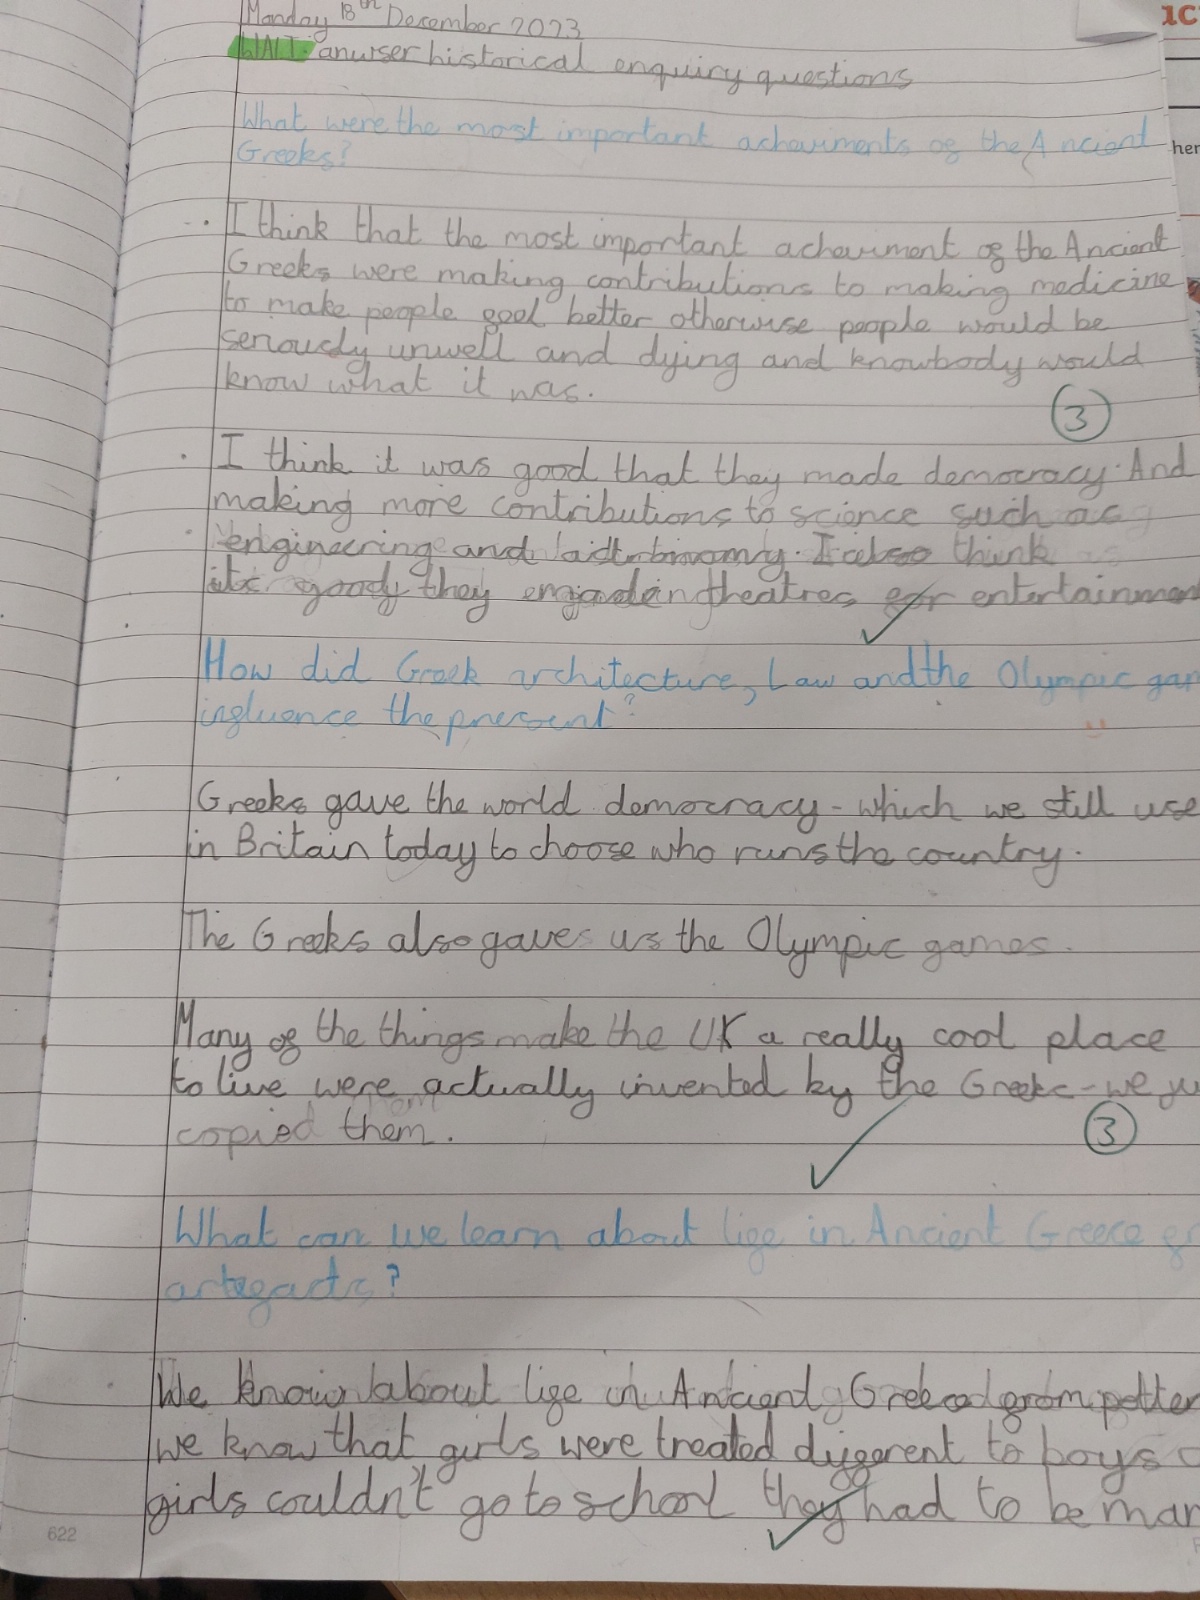 Monday 18th December 2023
WALT: anwser historical enquiry questions
What were the most important acheivments of the Ancient
Greeks?
I think that the most important acheivment of the Ancient
Greeks were making contributions to making medicine
to make people feel better otherwise people would be
seriously unwell and dying and knowbody would
know what it was.
3
I think it was good that they made democracy. And
making more contributions to science such as
engineering and. I also think
its good they in theatres for entertainment
How did Greek architecture, Law and the Olympic gam
influence the present?
Greeks gave the world democracy - which we still use
in Britain today to choose who runs the country.
The Greeks also gaves us the Olympic games.
Many of the things make the UK a really cool place
to live were actually invented by the Greeks - we ju
copied them.
3
What can we learn about life in Ancient Greece fr
artefacts?
We know about life in Ancient from potter
we know that girls were treated different to boys
girls couldn't go to school they had to be mar
622
1C
her